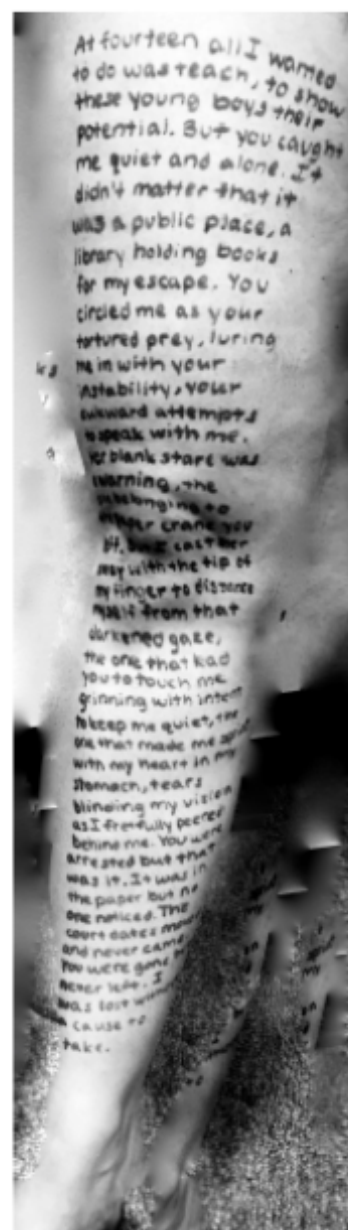 At fourteen all I wanted
to do was teach, to show
these young boys their
potential. But you caught
me quiet and alone. It
didn't matter that it
was a public place, a
library holding books
for my escape. You
circled me as your
tortured prey, luring
me in with your
instability, your
awkward attempts
to speak with me.
blank stare was
warning, the
belonging to
paper crane you
cast her
away with the tip of
my finger to distance
myself from that
darkened gaze,
the one that had
you to touch me
grinning with intent
to keep me quiet, the
one that made me
with my heart in my
stomach, tears
blinding my vision
as I fretfully peered
behind me. You were
arrested but that
was it. It was in
the paper but no
one noticed. The
court dates
and never came.
You were gone
never left. I
was lost
a cause to
take.